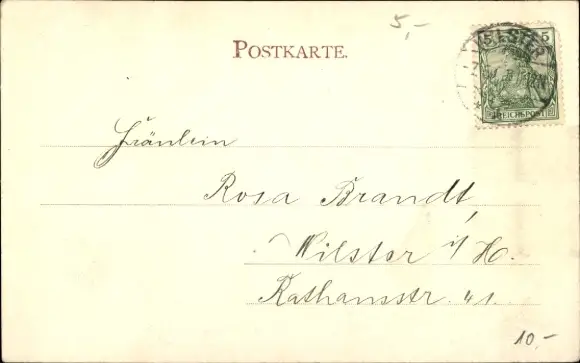 5,-
POSTKARTE.
WILSTER
5 5
REICHSPOST
Fräulein
Rosa Brandt,
Wilster i/H.
Rathausstr. 41.
10,-